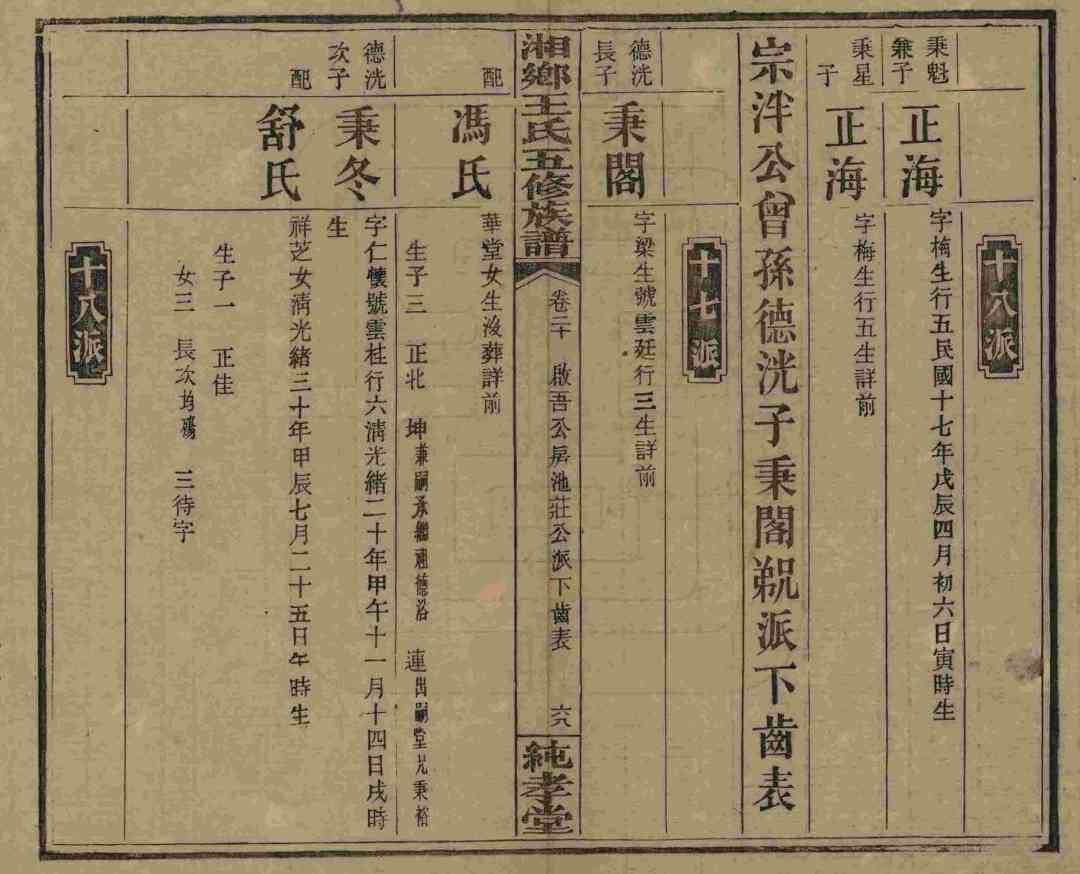 十八派
秉魁
兼子
正海
字梅生行五民國十七年戊辰四月初六日寅時生
秉星
子
正海
字梅生行五生詳前
宗泮公曾孫德洸子秉閣派下齒表
十七派
德洸
長子
秉閣
字梁生號雲廷行三生詳前
湘鄉王氏五修族譜
卷二十
啟吾公房池莊公派下齒表
六八
純孝堂
配
馮氏
華堂女生沒葬詳前
生子三 正北 坤兼嗣承繼連德浴 連出嗣堂兄秉裕
德洸
次子
秉冬
字仁懷號雲桂行六清光緒二十年甲午十一月十四日戌時
生
配
舒氏
祥芝女清光緒三十年甲辰七月二十五日午時生
生子一 正佳
女三 長次均殤 三待字
十八派